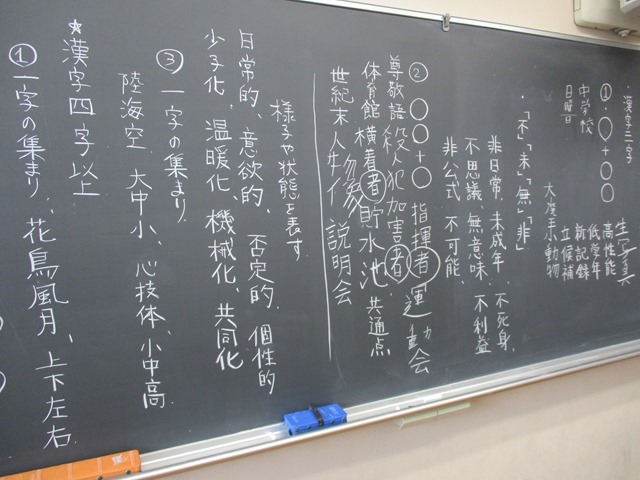 ・漢字三字
①・〇+〇〇
中学校
日曜日
生写真
高性能
低学年
新記録
立候補
大座手小動物
・「不」「未」「無」「非」
非日常、未成年、不死身、
不思議、無意味、不利益
非公式 不可能、
②〇〇+〇 指揮者 運動会
尊敬語 殺人犯 加害者
体育館 横着者 貯水池 共通点
世紀末 人生 説明会
様子や状態を表す
日常的、意欲的、否定的、個性的
少子化、温暖化、機械化、共同化
③一字の集まり
陸海空、大中小、心技体、小中高
★漢字四字以上
①一字の集まり、花鳥風月、上下左右